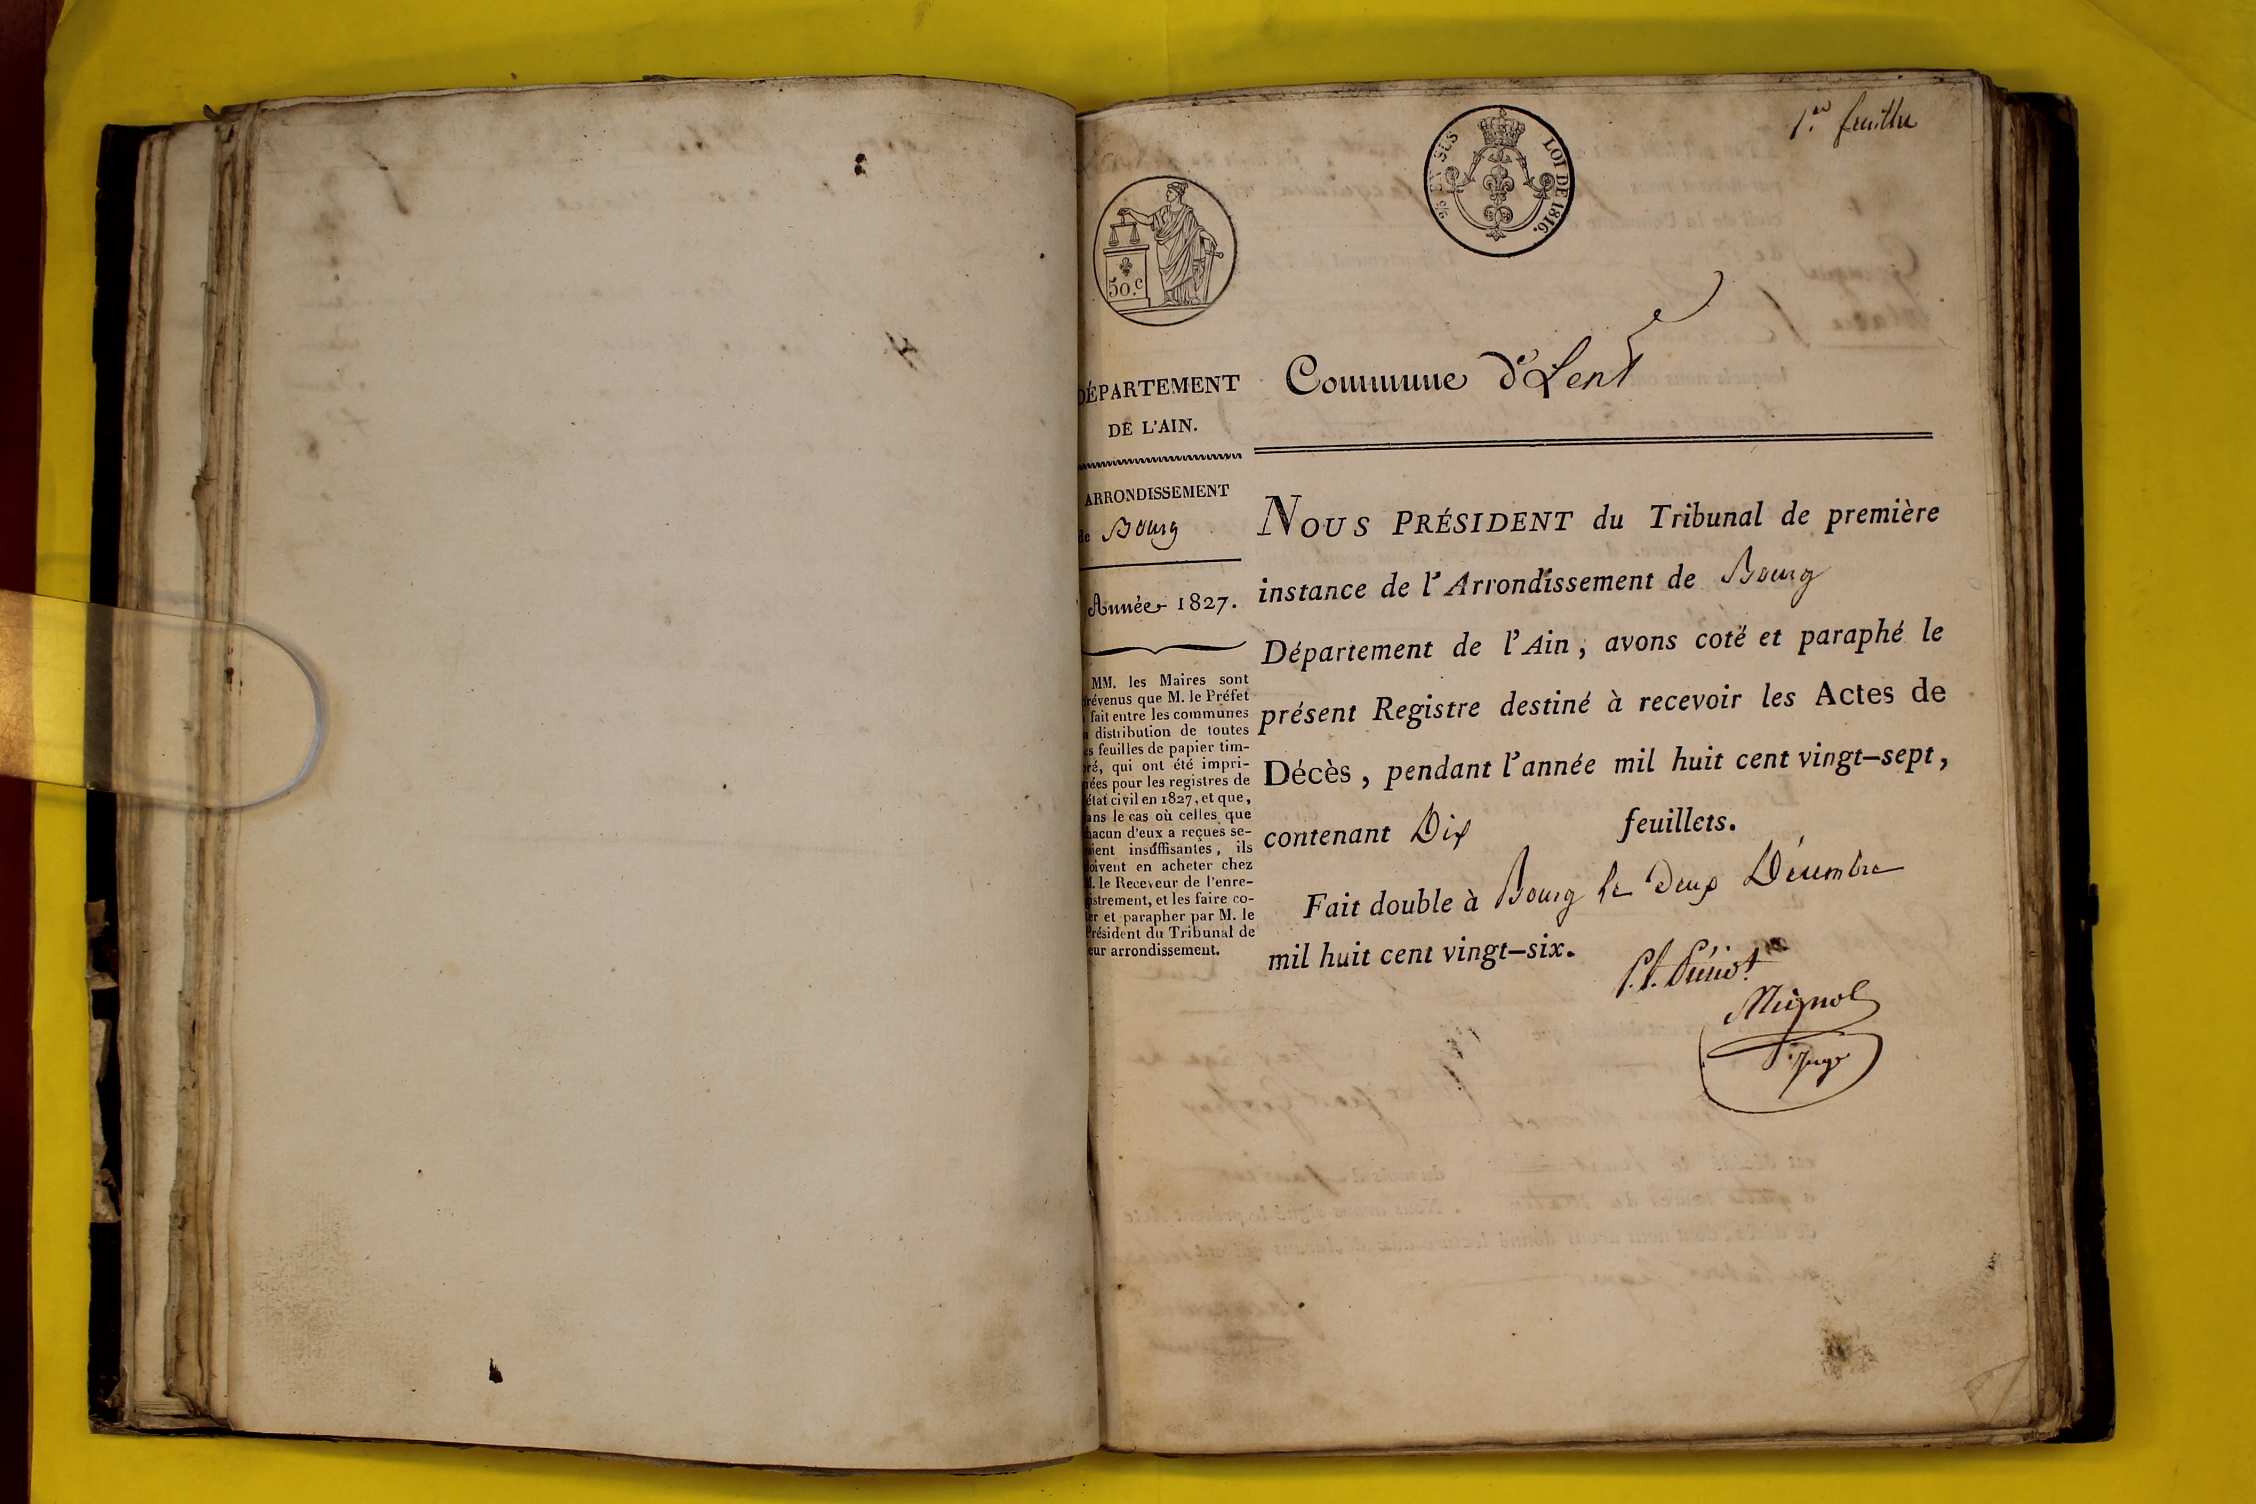 1.er feuillet
EN SUS
LOI DE 1816.
50.c
DÉPARTEMENT
DE L'AIN.
ARRONDISSEMENT
de Bourg
Année 1827.
MM. les Maires sont
prévenus que M. le Préfet
a fait entre les communes
la distribution de toutes
les feuilles de papier tim-
bré, qui ont été impri-
mées pour les registres de
l'état civil en 1827, et que,
dans le cas où celles que
chacun d'eux a reçues se-
raient insuffisantes, ils
doivent en acheter chez
M. le Receveur de l'enre-
gistrement, et les faire co-
ter et parapher par M. le
Président du Tribunal de
leur arrondissement.
Commune d'Lent
NOUS PRÉSIDENT du Tribunal de première
instance de l'Arrondissement de Bourg
Département de l'Ain, avons coté et paraphé le
présent Registre destiné à recevoir les Actes de
Décès, pendant l'année mil huit cent vingt-sept,
contenant Dix feuillets.
Fait double à Bourg le Deux Décembre
mil huit cent vingt-six.
Mignot
Juge